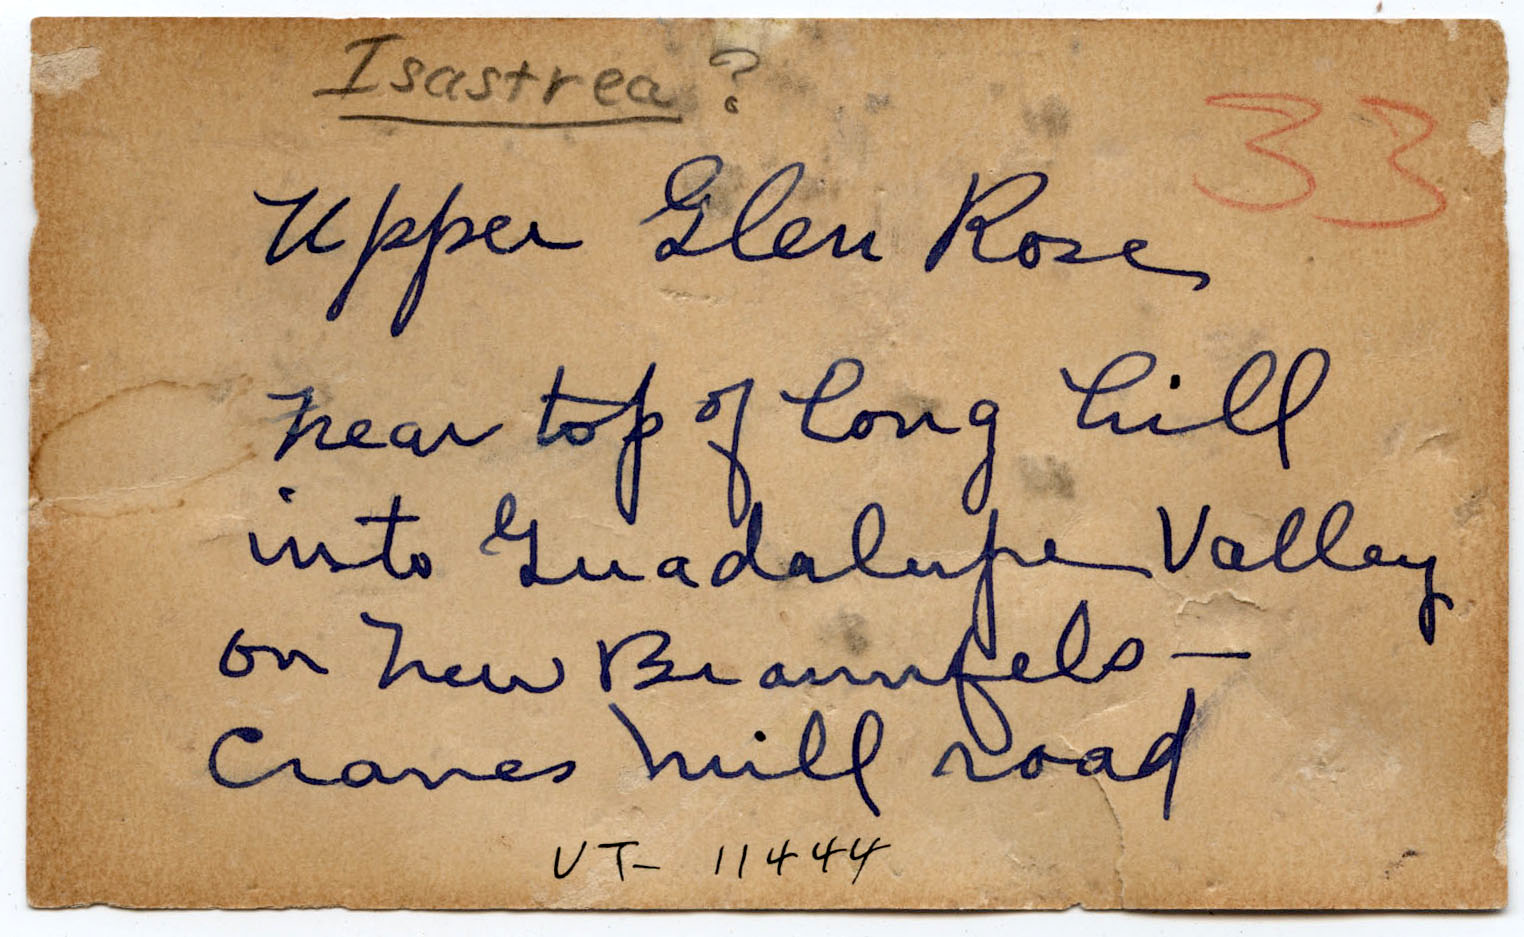 Isastrea ?
33
Upper Glen Rose
near top of long hill
into Guadalupe Valley
on New Braunfels —
Cranes Mill road
UT- 11444